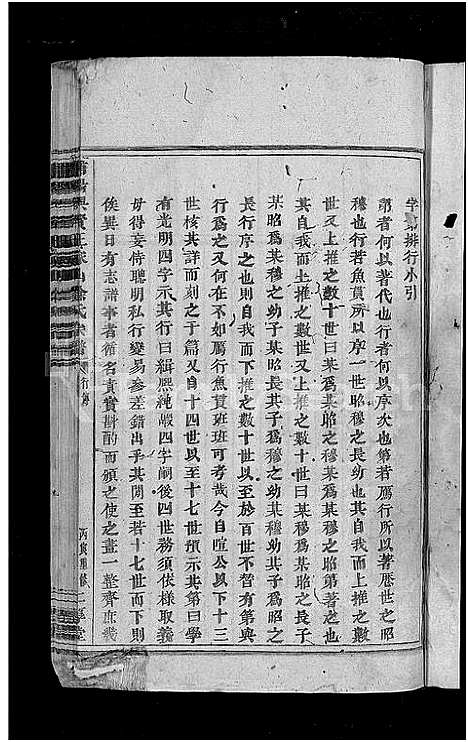 字第排行小引
第者何以著代也行者何以序次也第若鴈行所以著歷世之昭
穆也行若魚貫所以序一世昭穆之長幼也其自我而上推之數
世又上推之數十世曰某為某昭之穆某為某穆之昭第著之也
其自我而上推之數世又上推之數十世曰某穆為某昭之長子
某昭為某穆之幼子某昭長其子為某穆之幼某穆幼其子為昭之
長行序之也則自我而下推之數十世以至於百世不皆有第與
行為之又何在不如鴈行魚貫班班可考哉今自喧公以下十三
世核其詳而刻之于篇又自十四世以至十七世預示其第曰學
有光明四字示其行曰緝熙純嚴四字嗣後四世務須依樣取義
毋得妄侍聰明私行變易參差錯出乎其間至若十七世而下則
俟異日有志譜事者循名責實斟酌而頒之使之畫一整齊庶幾
行第
丙寅重修